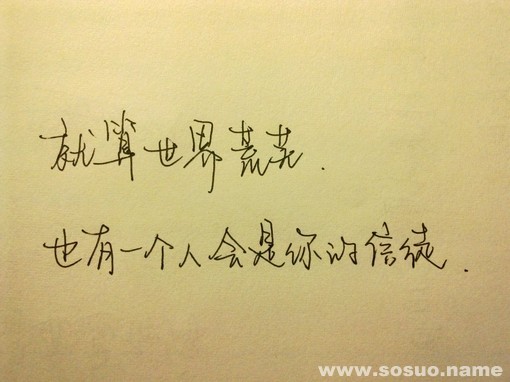 就算世界荒芜.
也有一个人会是你的信徒.
www.sosuo.name